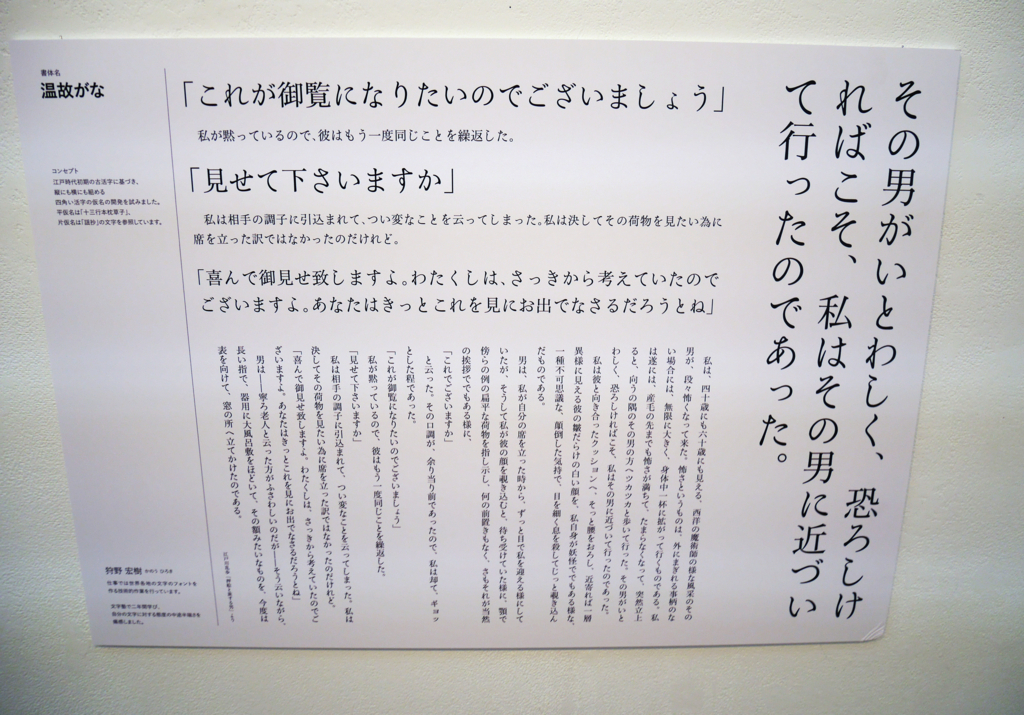 書体名
温故がな
コンセプト
江戸時代初期の古活字に基づき、
縦にも横にも組める
四角い活字の仮名の開発を試みました。
平仮名は「十三行本枕草子」、
片仮名は「謡抄」の文字を参照しています。
狩野 宏樹 かのう ひろき
仕事では世界各地の文字のフォントを
作る技術的作業を行っています。
文字塾で二年間学び、
自分の文字に対する態度の中途半端さを
痛感しました。
「これが御覧になりたいのでございましょう」
私が黙っているので、彼はもう一度同じことを繰返した。
「見せて下さいますか」
私は相手の調子に引込まれて、つい変なことを云ってしまった。私は決してその荷物を見たい為に
席を立った訳ではなかったのだけれど。
「喜んで御見せ致しますよ。わたくしは、さっきから考えていたので
ございますよ。あなたはきっとこれを見にお出でなさるだろうとね」
その男がいとわしく、恐ろしけ
ればこそ、私はその男に近づい
て行ったのであった。
私は、四十歳にも六十歳にも見える、西洋の魔術師の様な風采のその
男が、段々怖くなって来た。怖さというものは、外にまぎれる事柄のな
い場合には、無限に大きく、身体中一杯に拡がって行くものである。私
は遂には、産毛の先までも怖さが満ちて、たまらなくなって、突然立上
ると、向うの隅のその男の方へツカツカと歩いて行った。その男がいと
わしく、恐ろしければこそ、私はその男に近づいて行ったのであった。
私は彼と向き合ったクッションへ、そっと腰をおろし、近寄れば一層
異様に見える彼の皺だらけの白い顔を、私自身が妖怪ででもある様な、
一種不可思議な、顛倒した気持で、目を細く息を殺してじっと覗き込ん
だものである。
男は、私が自分の席を立った時から、ずっと目で私を迎える様にして
いたが、そうして私が彼の顔を覗き込むと、待ち受けていた様に、顎で
傍らの例の扁平な荷物を指し示し、何の前置きもなく、さもそれが当然
の挨拶ででもある様に、
「これでございますか」
と云った。その口調が、余り当り前であったので、私は却て、ギョッ
とした程であった。
「これが御覧になりたいのでございましょう」
私が黙っているので、彼はもう一度同じことを繰返した。
「見せて下さいますか」
私は相手の調子に引込まれて、つい変なことを云ってしまった。私は
決してその荷物を見たい為に席を立った訳ではなかったのだけれど。
「喜んで御見せ致しますよ。わたくしは、さっきから考えていたのでご
ざいますよ。あなたはきっとこれを見にお出でなさるだろうとね」
男は――寧ろ老人と云った方がふさわしいのだが――そう云いながら、
長い指で、器用に大風呂敷をほどいて、その額みたいなものを、今度は
表を向けて、窓の所へ立てかけたのである。
江戸川乱歩「押絵と旅する男」より